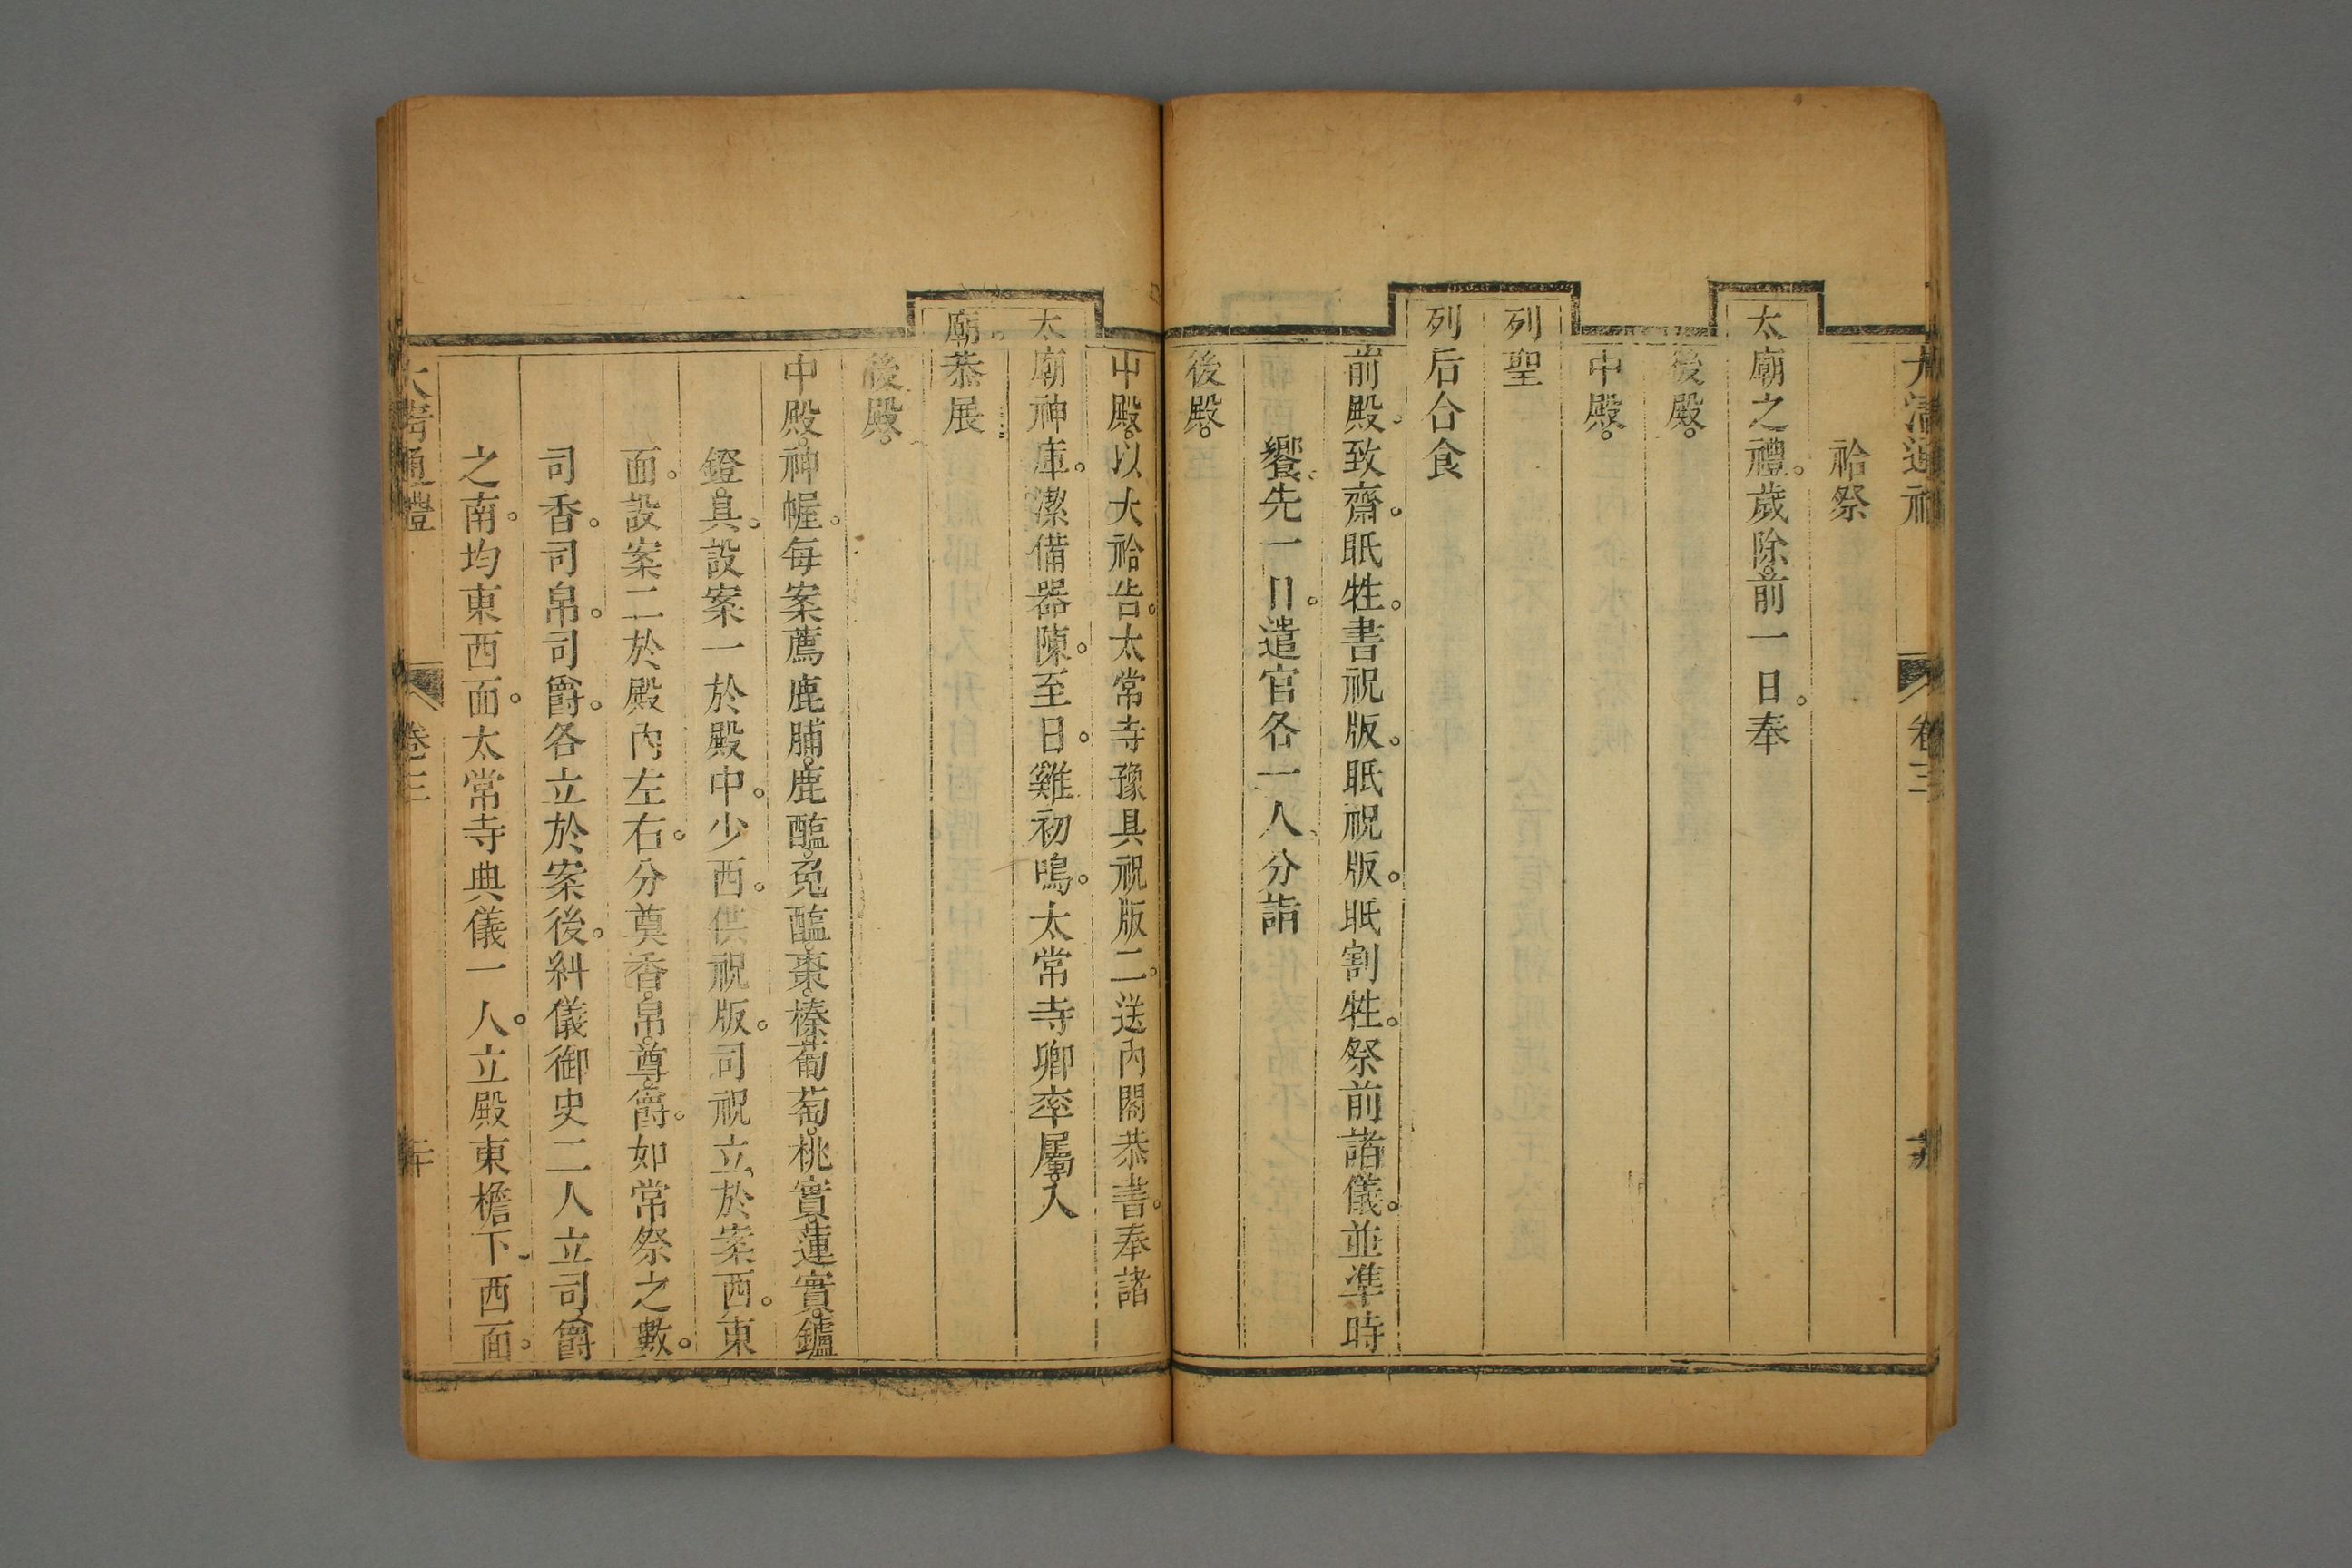 大清通禮 卷三
祫祭
太廟之禮。歲除。前一日。奉
後殿。
中殿。
列聖
列后合食
前殿。致齋。眂牲。書祝版。眂祝版。眂割牲。祭前諸儀。並準時
饗。先一日。遣官各一人、分詣
後殿。
中殿。以大祫告。太常寺豫具祝版二。送內閣恭書。奉諸
太廟神庫。潔備器陳。至日。雞初鳴。太常寺卿率屬入
廟。恭展
後殿。
中殿。神幄。每案薦鹿脯。鹿醢。兔醢。棗。榛。葡萄。桃實。蓮實。鑪
鐙具。設案一於殿中。少西。供祝版。司祝立於案西。東
面。設案二於殿內左右。分奠香。帛。尊。爵。如常祭之數。
司香。司帛。司爵。各立於案後。糾儀御史二人立司爵
之南。均東西面。太常寺典儀一人。立殿東檐下、西面。
大清通禮 卷三 二十